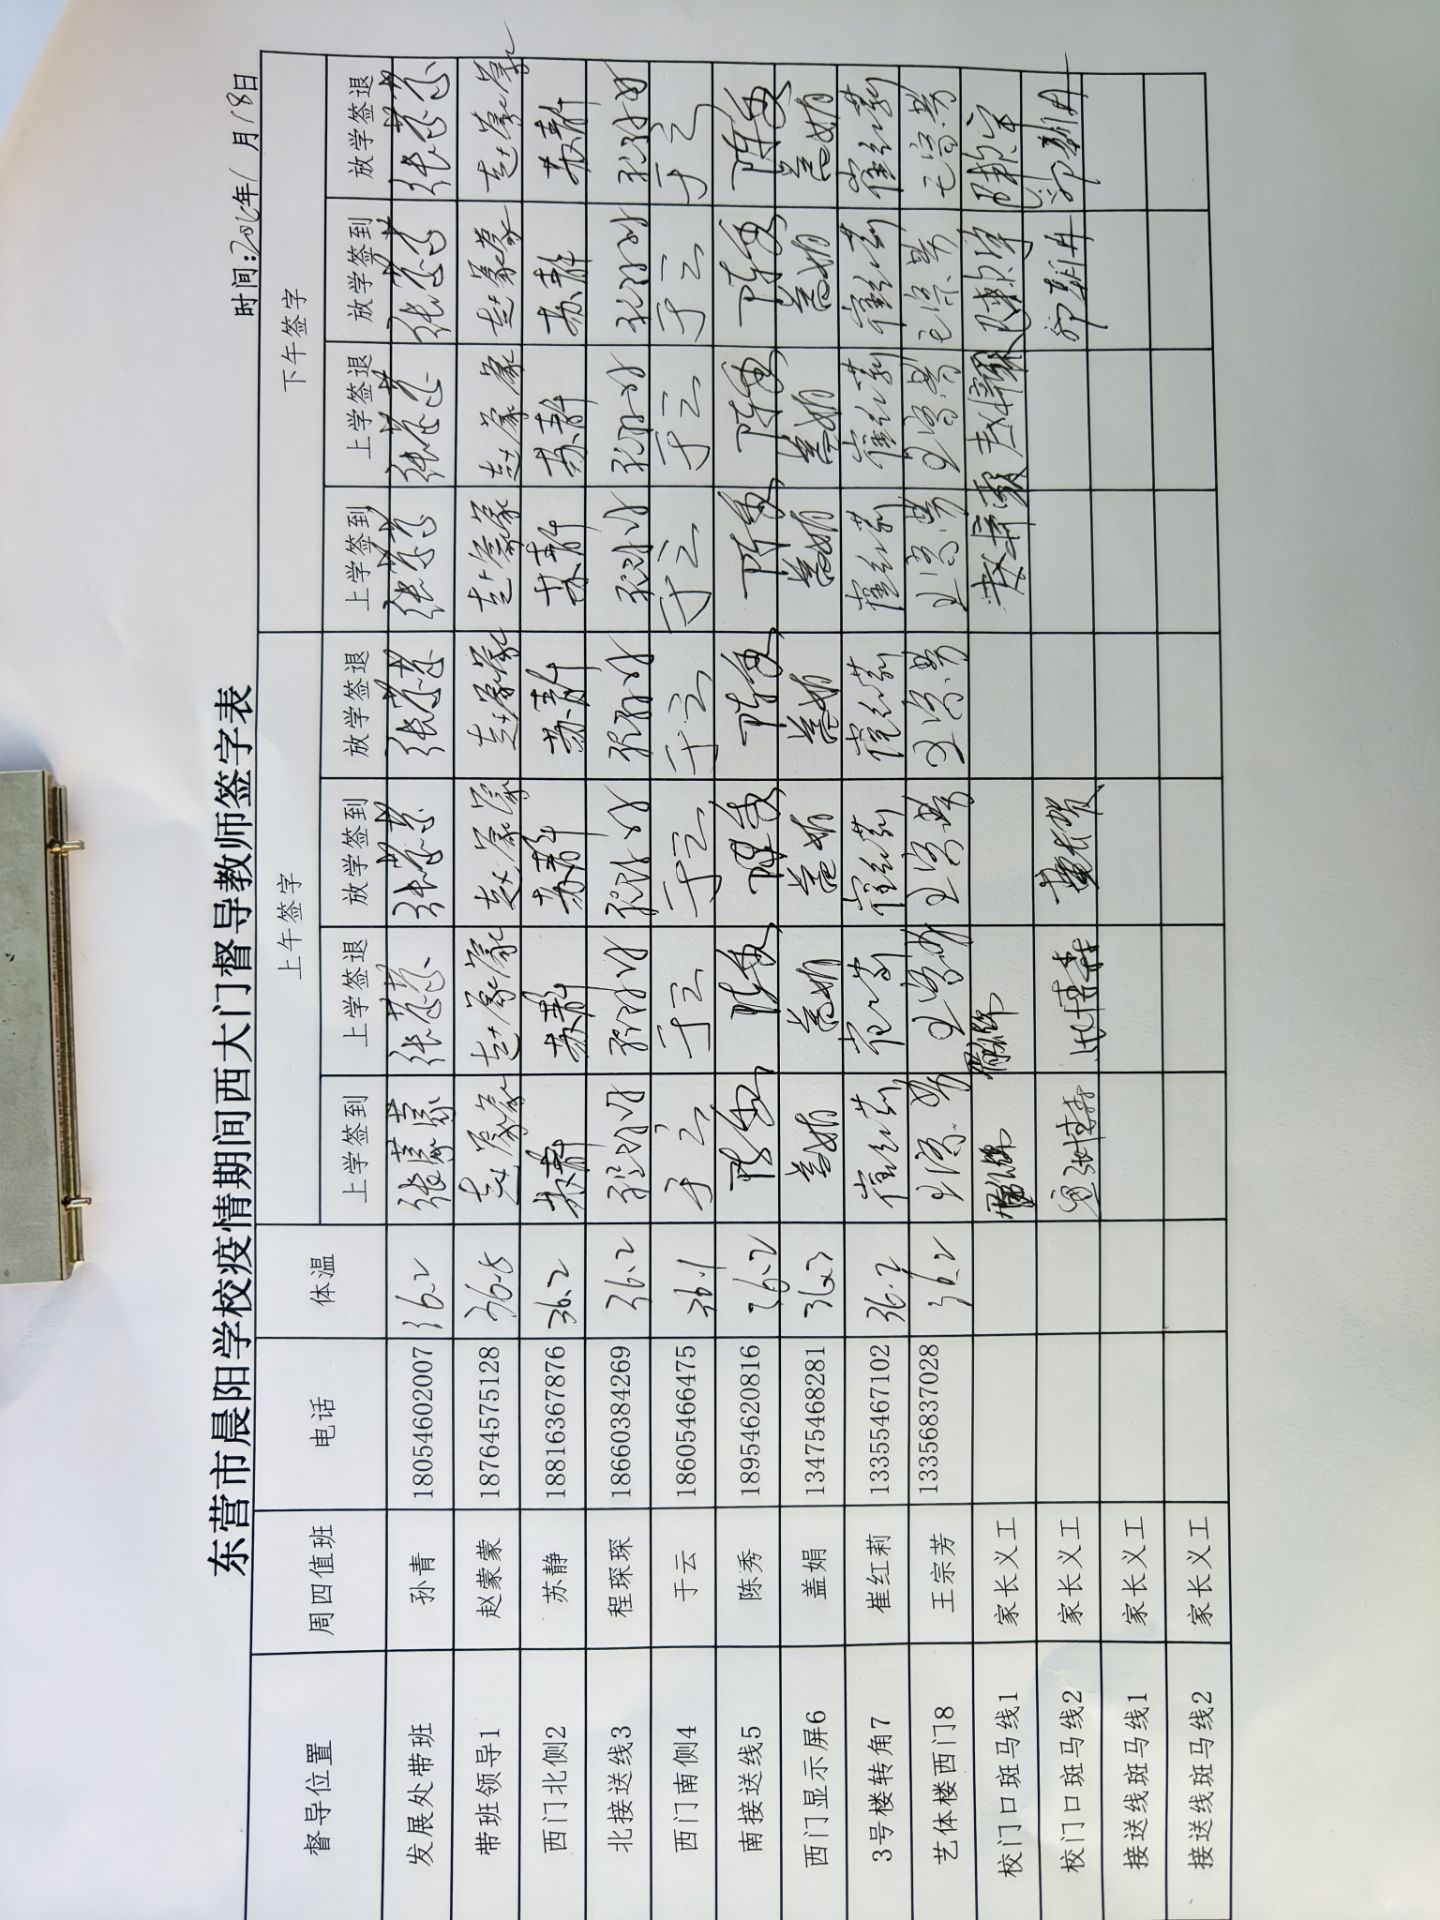 东营市晨阳学校疫情期间西大门督导教师签字表
时间: 年1月18日
督导位置 周四值班 电话 体温 上午签字 下午签字
上学签到 上学签退 放学签到 放学签退 上学签到 上学签退 放学签到 放学签退
发展处带班 孙青 18054602007 36.2
带班领导1 赵蒙蒙 18764575128 36.5 赵蒙蒙 赵蒙蒙 赵蒙蒙 赵蒙蒙 赵蒙蒙 赵蒙蒙 赵蒙蒙 赵蒙蒙
西门北侧2 苏静 18816367876 36.2 苏静 苏静 苏静 苏静 苏静 苏静 苏静 苏静
北接送线3 程琛琛 18660384269 36.2 程琛琛 程琛琛 程琛琛 程琛琛 程琛琛 程琛琛 程琛琛 程琛琛
西门南侧4 于云 18605466475 36.1 于云 于云 于云 于云 于云 于云 于云 于云
南接送线5 陈秀 18954620816 36.2 陈秀 陈秀 陈秀 陈秀 陈秀 陈秀 陈秀 陈秀
西门显示屏6 盖娟 13475468281 36.3 盖娟 盖娟 盖娟 盖娟 盖娟 盖娟 盖娟 盖娟
3号楼转角7 崔红莉 13355467102 36.2 崔红莉 崔红莉 崔红莉 崔红莉 崔红莉 崔红莉 崔红莉 崔红莉
艺体楼西门8 王宗芳 13356837028 36.2 王宗芳 王宗芳 王宗芳 王宗芳 王宗芳 王宗芳 王宗芳 王宗芳
校门口斑马线1 家长义工
校门口斑马线2 家长义工
接送线斑马线1 家长义工
接送线斑马线2 家长义工